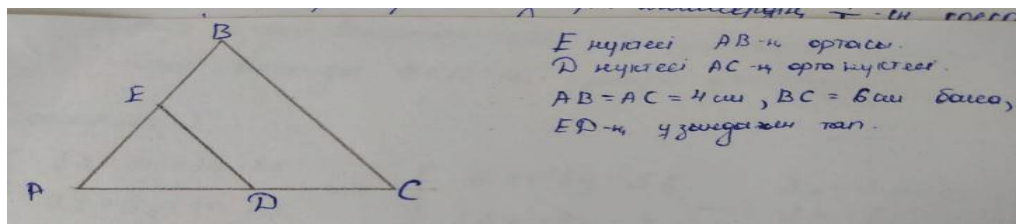 B
E нүктесі AB-ң ортасы.
D нүктесі AC-ң орта нүктесі.
E
AB = AC = 4 см, BC = 6 см болса,
ED-ң ұзындығын тап.
A
D
C